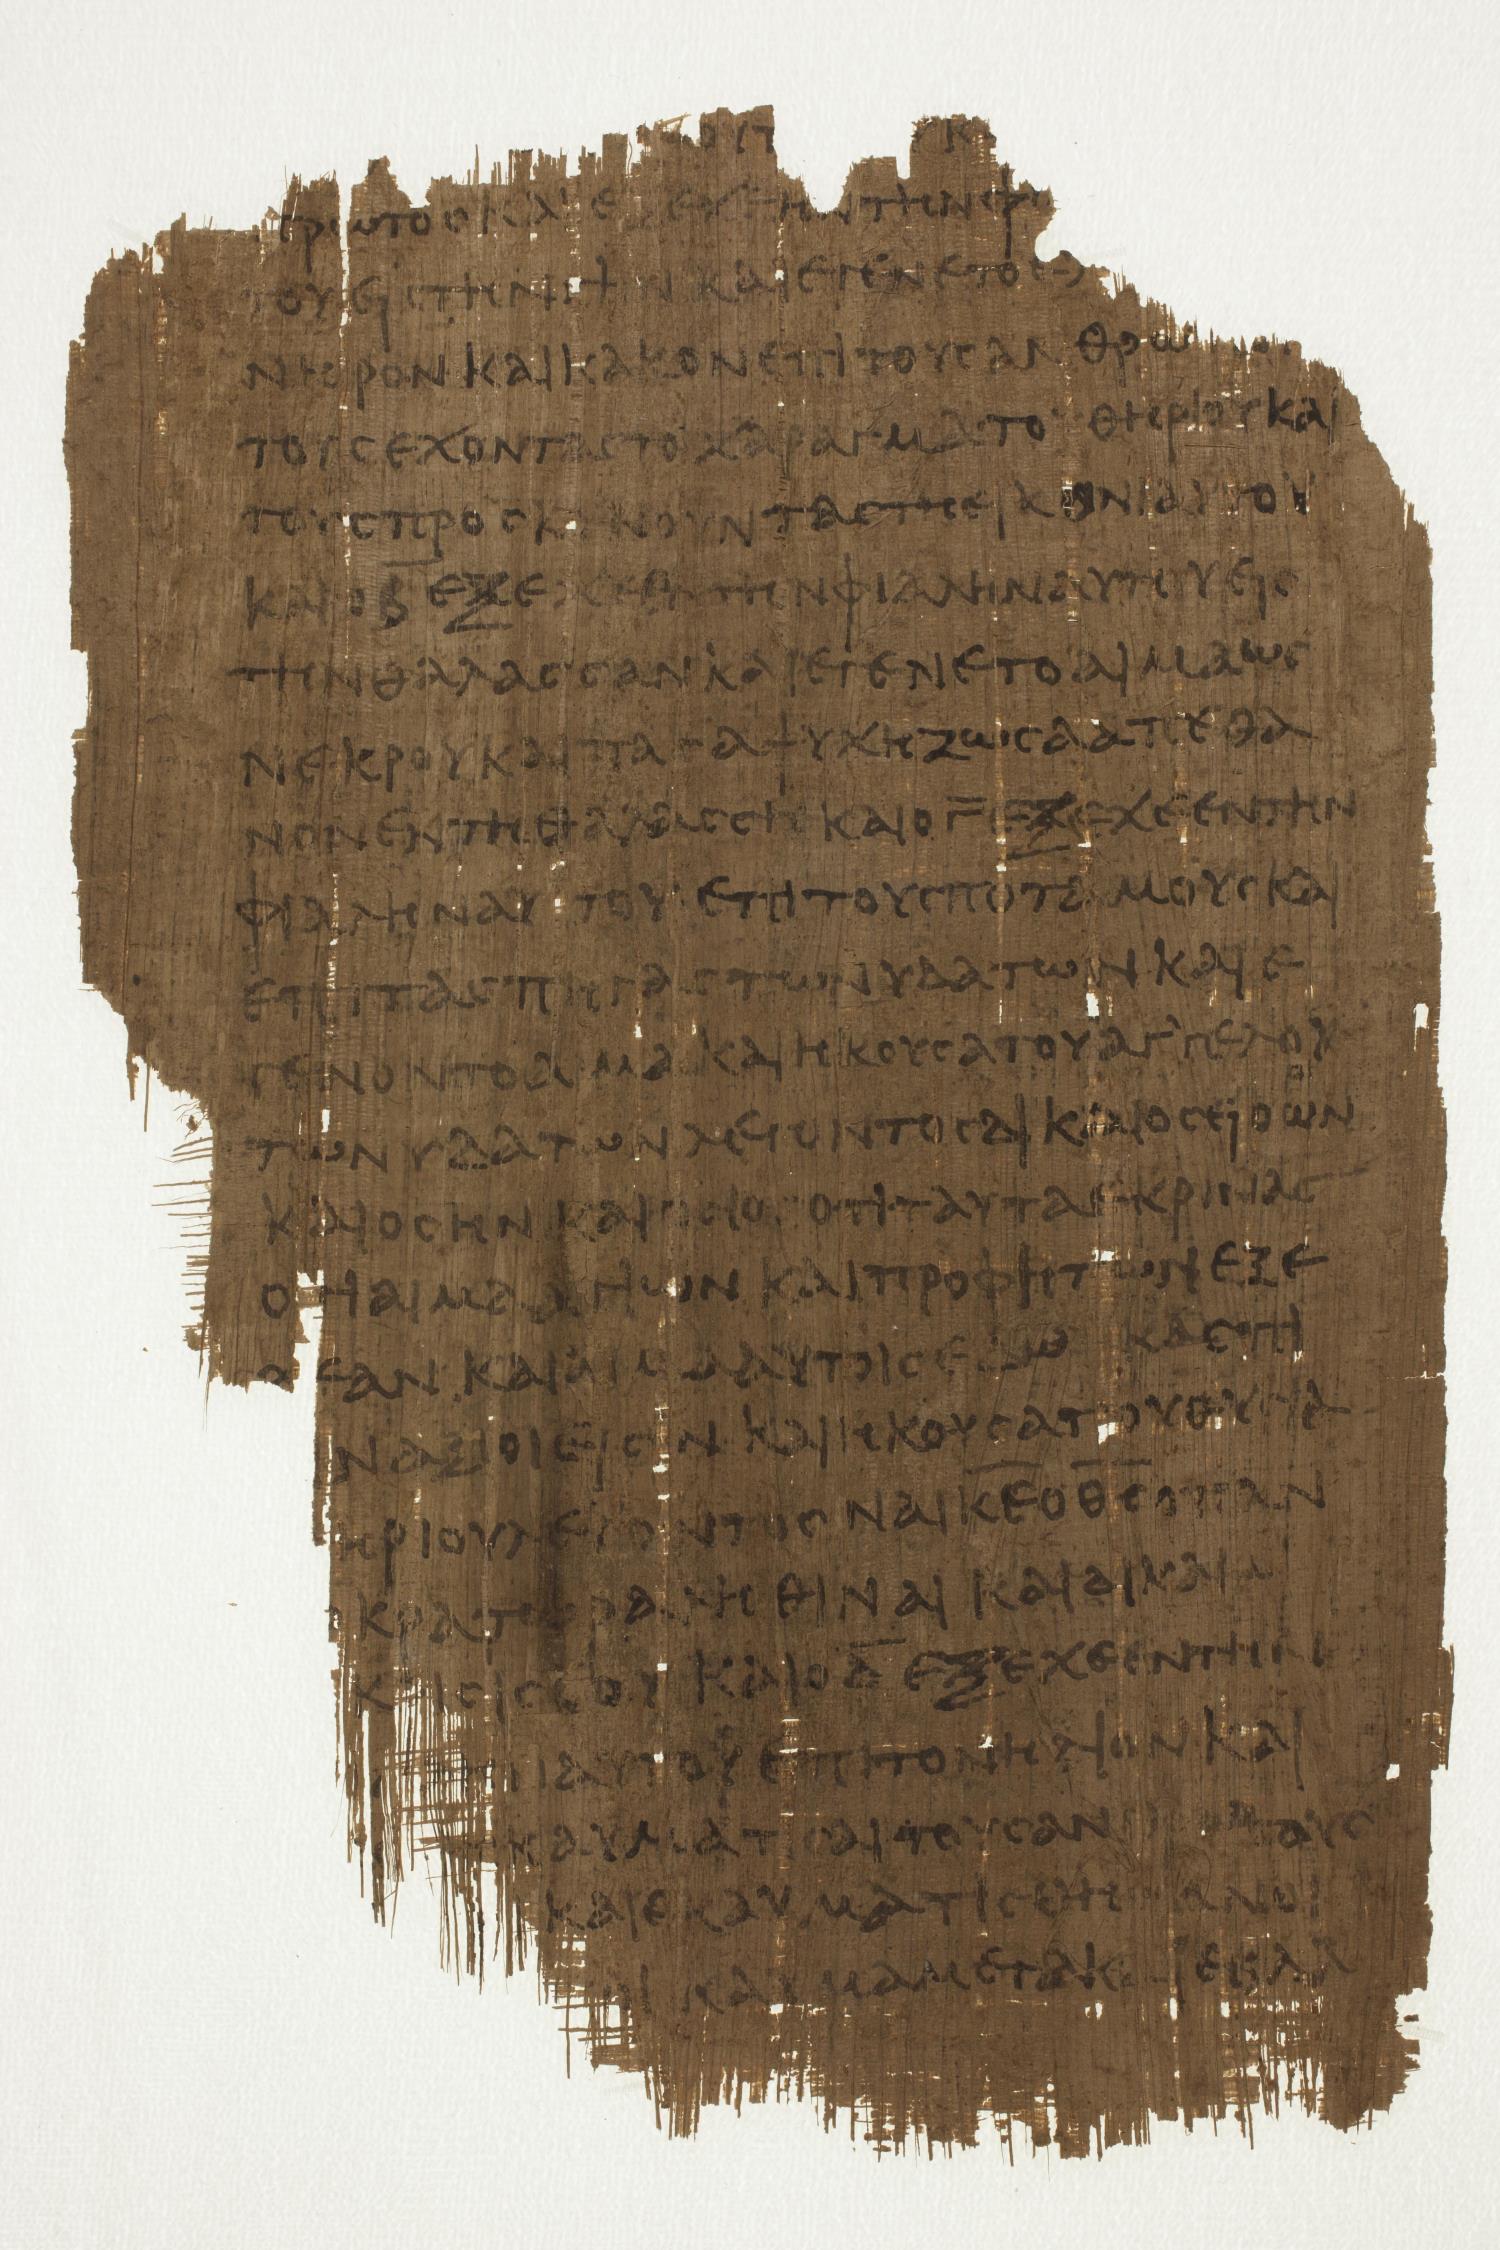 πρωτος και εξεχεεν την φι
του εις την γην και εγενετο ελ
πονηρον και κακον επι τους ανθρωπους
τους εχοντας το χαραγμα του θηριου και
τους προσκυνουντας της εικονι αυτου
και ο β̅ εξεχεεν την φιαλην αυτου εις
την θαλασσαν και εγενετο αιμα ως
νεκρου και πασα ψυχη ζωσα απεθα
νον εν τη θαλασση και ο γ̅ εξεχεεν την
φιαλην αυτου επι τους ποταμους και
επι τας πηγας των υδατων και ε
γενοντο αιμα και ηκουσα του αγ'γελου
των υδατων λεγοντος δικαιος ει ο ων
και ος ην και οσιος οτι ταυτα εκρινας
οτι αιμα αγιων και προφητων εξε
χεαν και αιμα αυτοις εδω κας πι
ν αξιοι εισιν και ηκουσα του θυσια
ηριου λεγοντος ναι κ̅ε̅ ο θ̅ς̅ ο παν
κρατωρ αληθιναι και δικαιαι
κρισις σου και ο δ̅ εξεχεεν την
αυτου επι τον ηλιον και
καυματισαι τους ανθρωπους
και εκαυματισθη ανοι
καυμα μεγα και εβλα